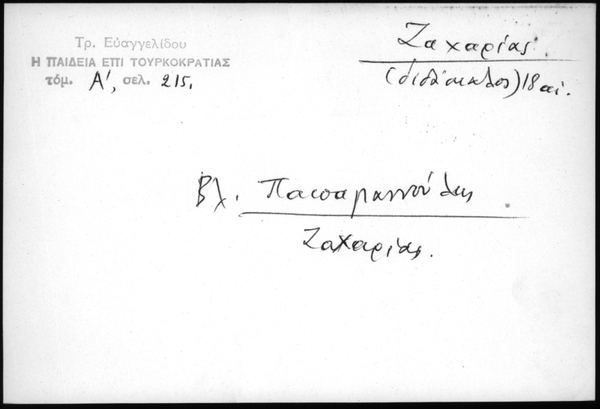 Τρ. Εὐαγγελίδου
Η ΠΑΙΔΕΙΑ ΕΠΙ ΤΟΥΡΚΟΚΡΑΤΙΑΣ
τόμ. Α', σελ. 215.
Ζαχαρίας.
(διδάσκαλος) 18 αἰ.
Βλ. Παπαγιαννούλης
Ζαχαρίας.